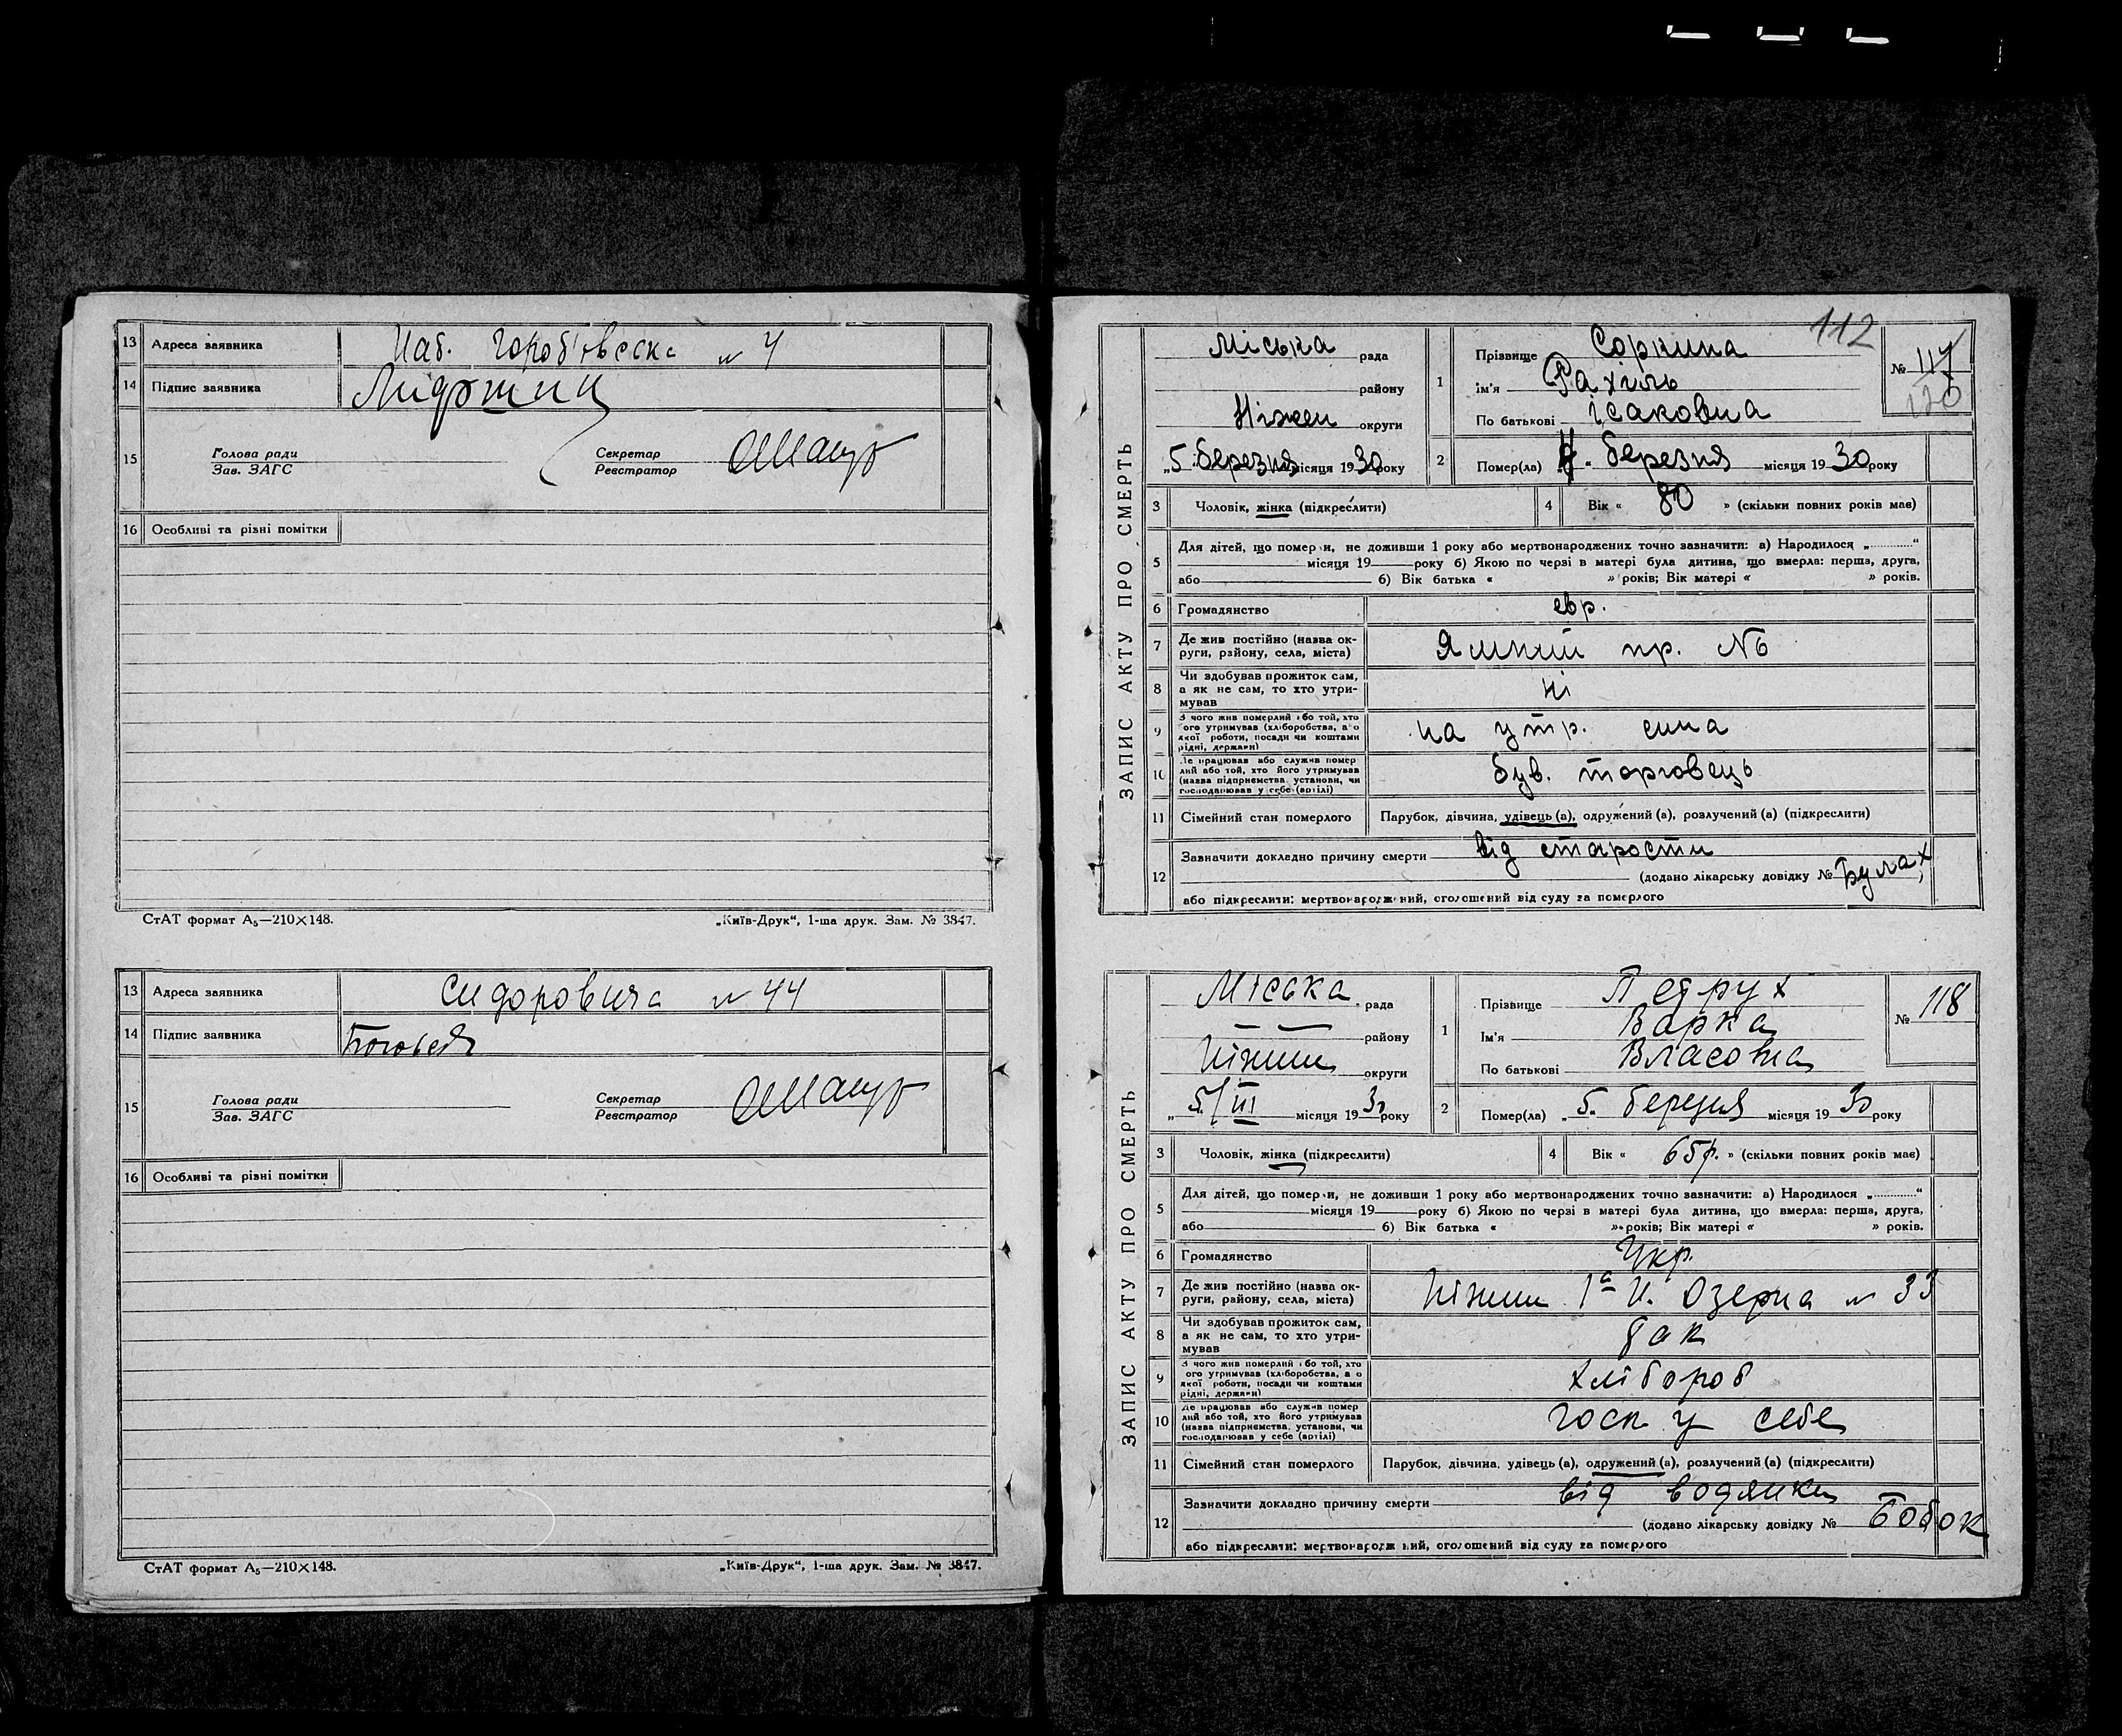 13 Адреса заявника Наб. Гороб'ївська № 4
14 Підпис заявника
15 Голова ради Секретар
Зав. ЗАГС Реєстратор
16 Особливі та різні помітки
СтАТ формат А5—210×148. „Київ-Друк“, 1-ша друк. Зам. № 3847.
13 Адреса заявника Сидоровича № 44
14 Підпис заявника
15 Голова ради Секретар
Зав. ЗАГС Реєстратор
16 Особливі та різні помітки
СтАТ формат А5—210×148. „Київ-Друк“, 1-ша друк. Зам. № 3847.
112
ЗАПИС АКТУ ПРО СМЕРТЬ
Міська рада
району
Ніжен округи
„5 березня місяця 1930 року
1 Прізвище Соркина
Ім'я Рахіль
По батькові Ісаковна
№ 117
170
2 Помер(ла) „4“ березня місяця 1930 року
3 Чоловік, жінка (підкреслити)
4 Вік « 80 » (скільки повних років має)
5 Для дітей, що померли, не доживши 1 року або мертвонароджених точно зазначити: а) Народилося „..........“
місяця 19 року б) Якою по черзі в матері була дитина, що вмерла: перша, друга,
або б) Вік батька « » років; Вік матері « » років.
6 Громадянство евр.
7 Де жив постійно (назва округи, району, села, міста) Ямний пр. №6
8 Чи здобував прожиток сам,
а як не сам, то хто утри-
мував ні
9 З чого жив померлий або той, хто
його утримував (хліборобства, або
якої роботи, посади чи коштами
рідні, держави) на утр. сина
10 Де працював або служив помер
лий або той, хто його утримував
(назва підприємства, установи, чи
господарював у себе (артілі) був. торговець
11 Сімейний стан померлого Парубок, дівчина, удівець (а), одружений (а), розлучений (а) (підкреслити)
12 Зазначити докладно причину смерти від старости
(додано лікарську довідку № Булах
або підкреслити: мертвонароджений, оголошений від суду за померлого
ЗАПИС АКТУ ПРО СМЕРТЬ
Міська рада
району
Ніжин округи
„5/III місяця 1930 року
1 Прізвище Петрух
Ім'я Варка
По батькові Власовна
№ 118
2 Помер(ла) „5. березня місяця 1930 року
3 Чоловік, жінка (підкреслити)
4 Вік « 65 р. » (скільки повних років має)
5 Для дітей, що померли, не доживши 1 року або мертвонароджених точно зазначити: а) Народилося „..........“
місяця 19 року б) Якою по черзі в матері була дитина, що вмерла: перша, друга,
або б) Вік батька « » років; Вік матері « » років.
6 Громадянство Укр.
7 Де жив постійно (назва округи, району, села, міста) Ніжин 1а Н. Озерна № 33
8 Чи здобував прожиток сам,
а як не сам, то хто утри-
мував так
9 З чого жив померлий або той, хто
його утримував (хліборобства, або
якої роботи, посади чи коштами
рідні, держави) хлібороб
10 Де працював або служив помер
лий або той, хто його утримував
(назва підприємства, установи, чи
господарював у себе (артілі) госп у себе
11 Сімейний стан померлого Парубок, дівчина, удівець (а), одружений (а), розлучений (а) (підкреслити)
12 Зазначити докладно причину смерти від водянки
(додано лікарську довідку № Бобок
або підкреслити: мертвонароджений, оголошений від суду за померлого